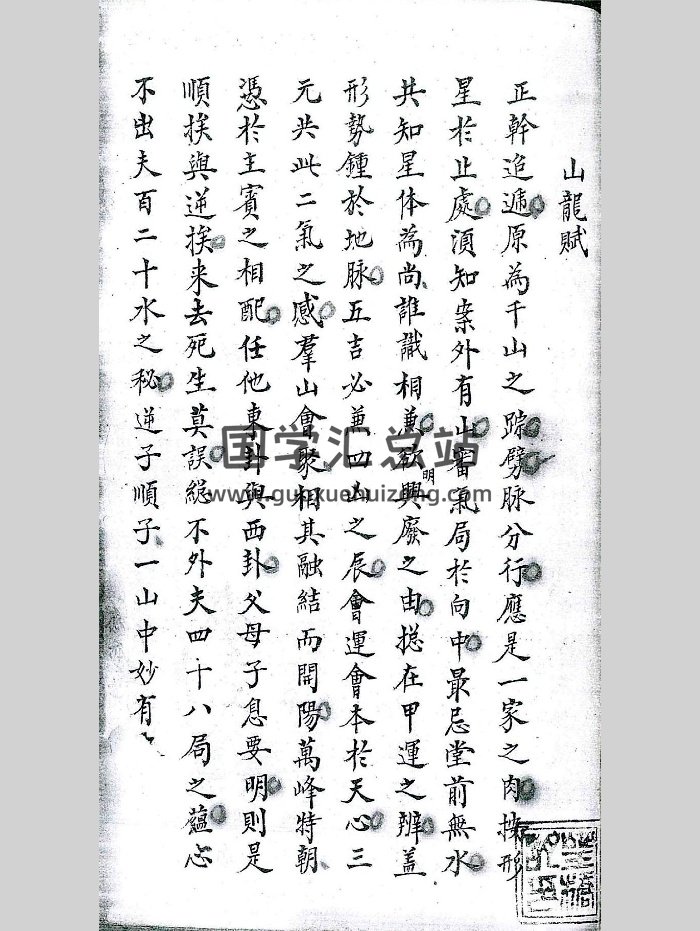 山龍賦
正幹追遞原為千山之踪劈脉分行應是一家之肉 形
星於止處須知案外有山審氣局於向中最忌堂前無水
共知星体為尚誰識相兼欲明興廢之由搃在甲運之辨盖
形勢鍾於地脉五吉必兼四山之辰會運會本於天心三
元共此二氣之感羣山會聚相其融結而開陽萬峰特朝
憑於主賓之相配任他東卦與西卦父母子息要明則是
順挨與逆挨来去死生莫誤総不外夫四十八局之蘊必
不出夫百二十水之秘逆子順子一山中妙有
国学汇总站
www.guoxuehuizong.com